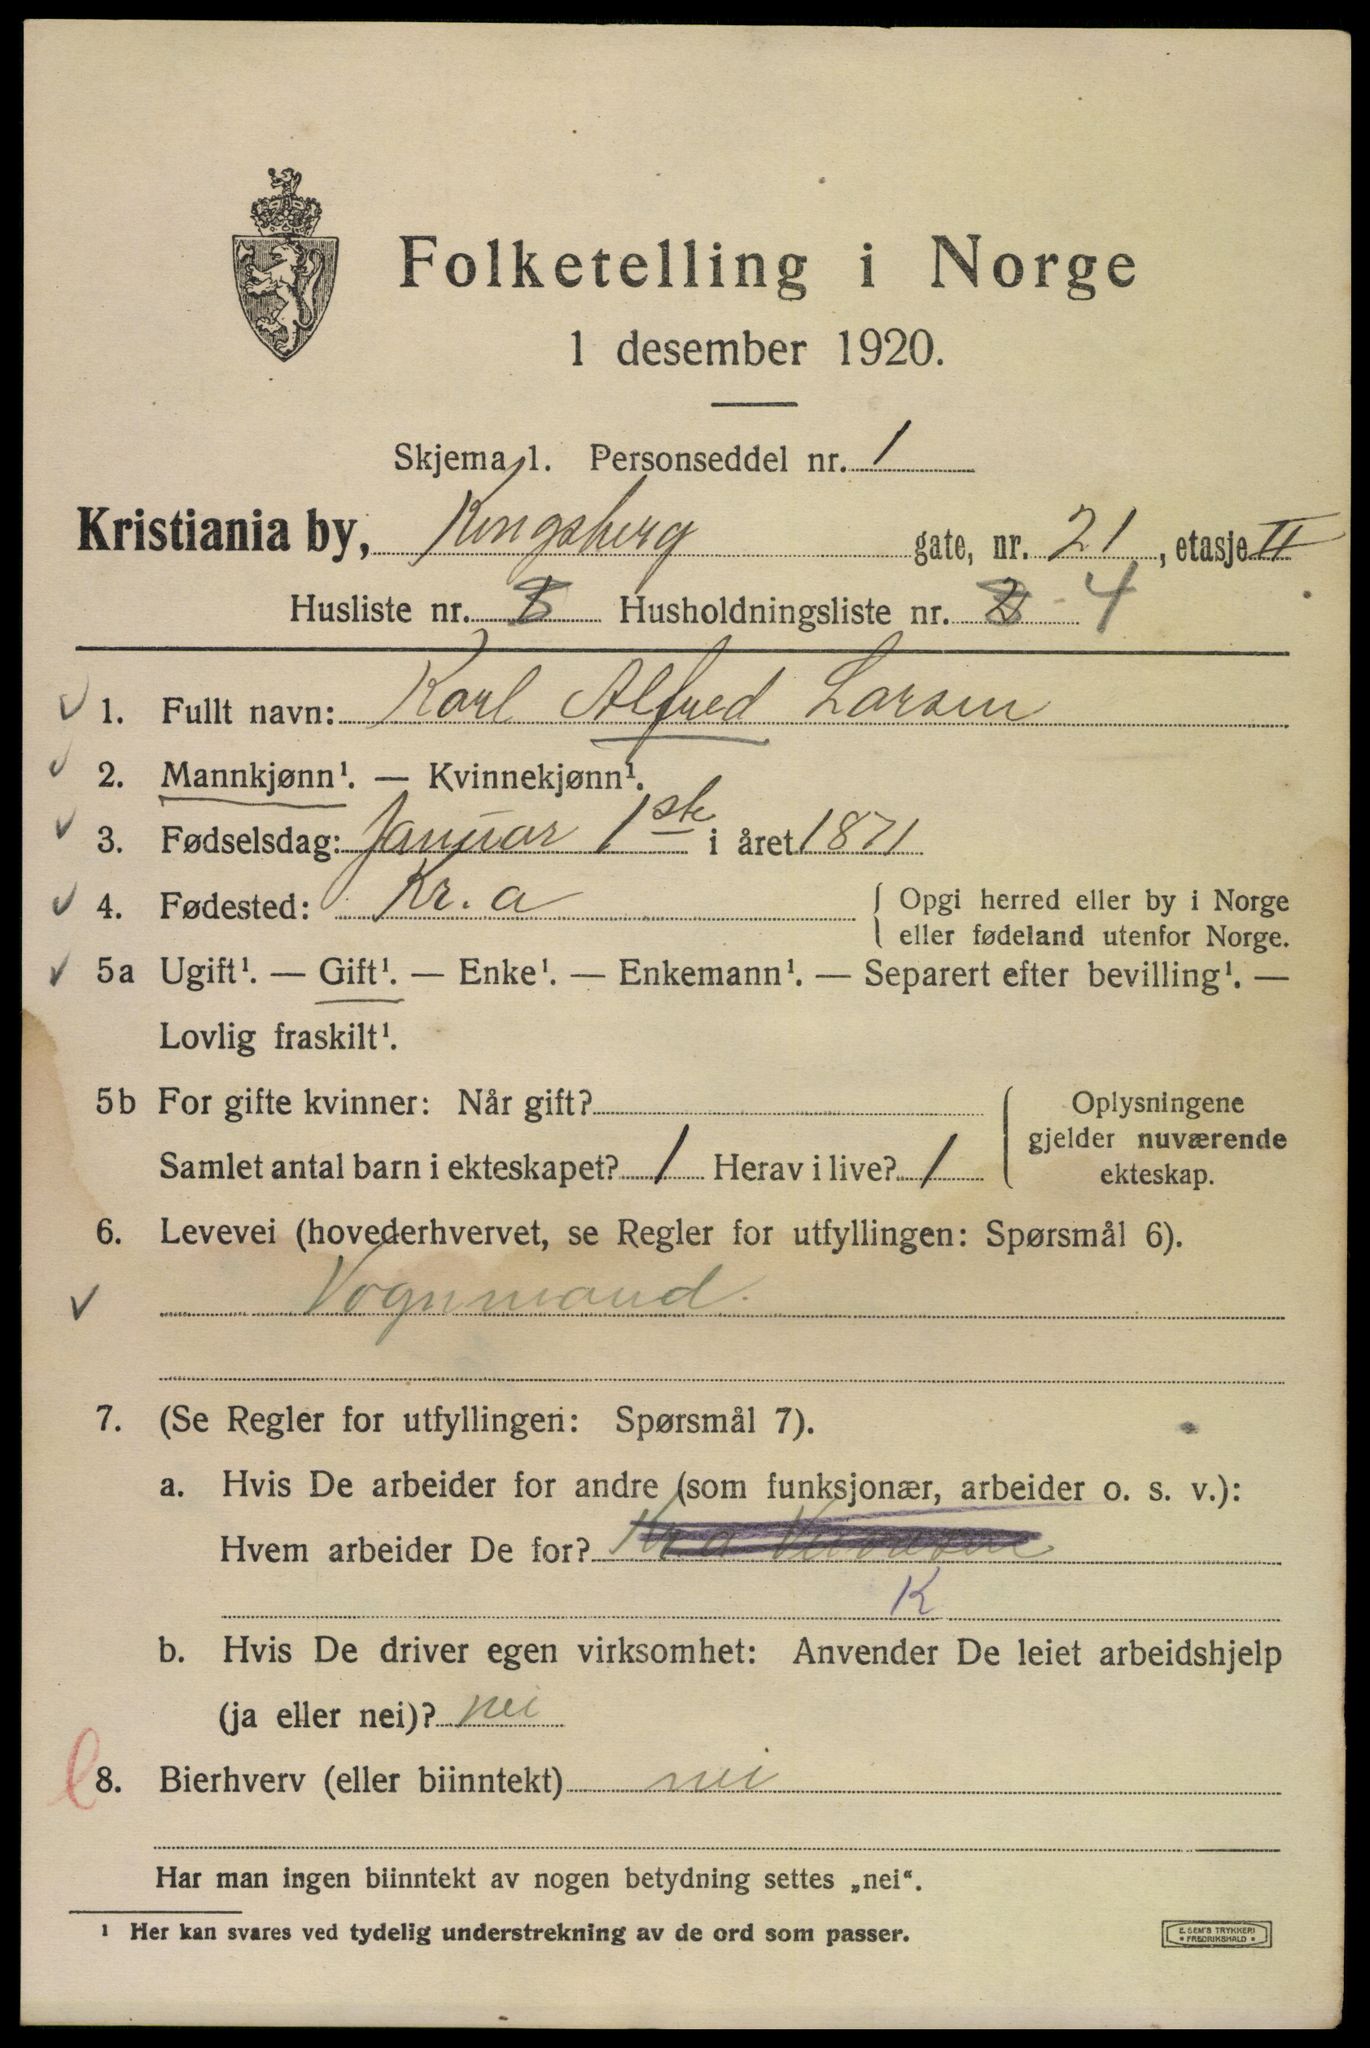 Folketelling i Norge
1 desember 1920.
Skjema 1. Personseddel nr. 1
Kristiania by, Kongsberg gate, nr. 21, etasje II
Husliste nr. Husholdningsliste nr. 4
1. Fullt navn: Karl Alfred Larsen
2. Mannkjønn¹. — Kvinnekjønn¹.
3. Fødselsdag: Januar 1ste i året 1871
4. Fødested: Kr.a { Opgi herred eller by i Norge
eller fødeland utenfor Norge.
5a Ugift¹. — Gift¹. — Enke¹. — Enkemann¹. — Separert efter bevilling¹. —
Lovlig fraskilt¹.
5b For gifte kvinner: Når gift? Oplysningene
gjelder nuværende
Samlet antal barn i ekteskapet? 1 Herav i live? 1 ekteskap.
6. Levevei (hovederhvervet, se Regler for utfyllingen: Spørsmål 6).
Vognmand.
7. (Se Regler for utfyllingen: Spørsmål 7).
a. Hvis De arbeider for andre (som funksjonær, arbeider o. s. v.):
Hvem arbeider De for? Kr.a
K
b. Hvis De driver egen virksomhet: Anvender De leiet arbeidshjelp
(ja eller nei)? nei
8. Bierhverv (eller biinntekt) nei
Har man ingen biinntekt av nogen betydning settes „nei“.
¹ Her kan svares ved tydelig understrekning av de ord som passer.
E. SEM'S TRYKKERI
• FREDRIKSHALD •